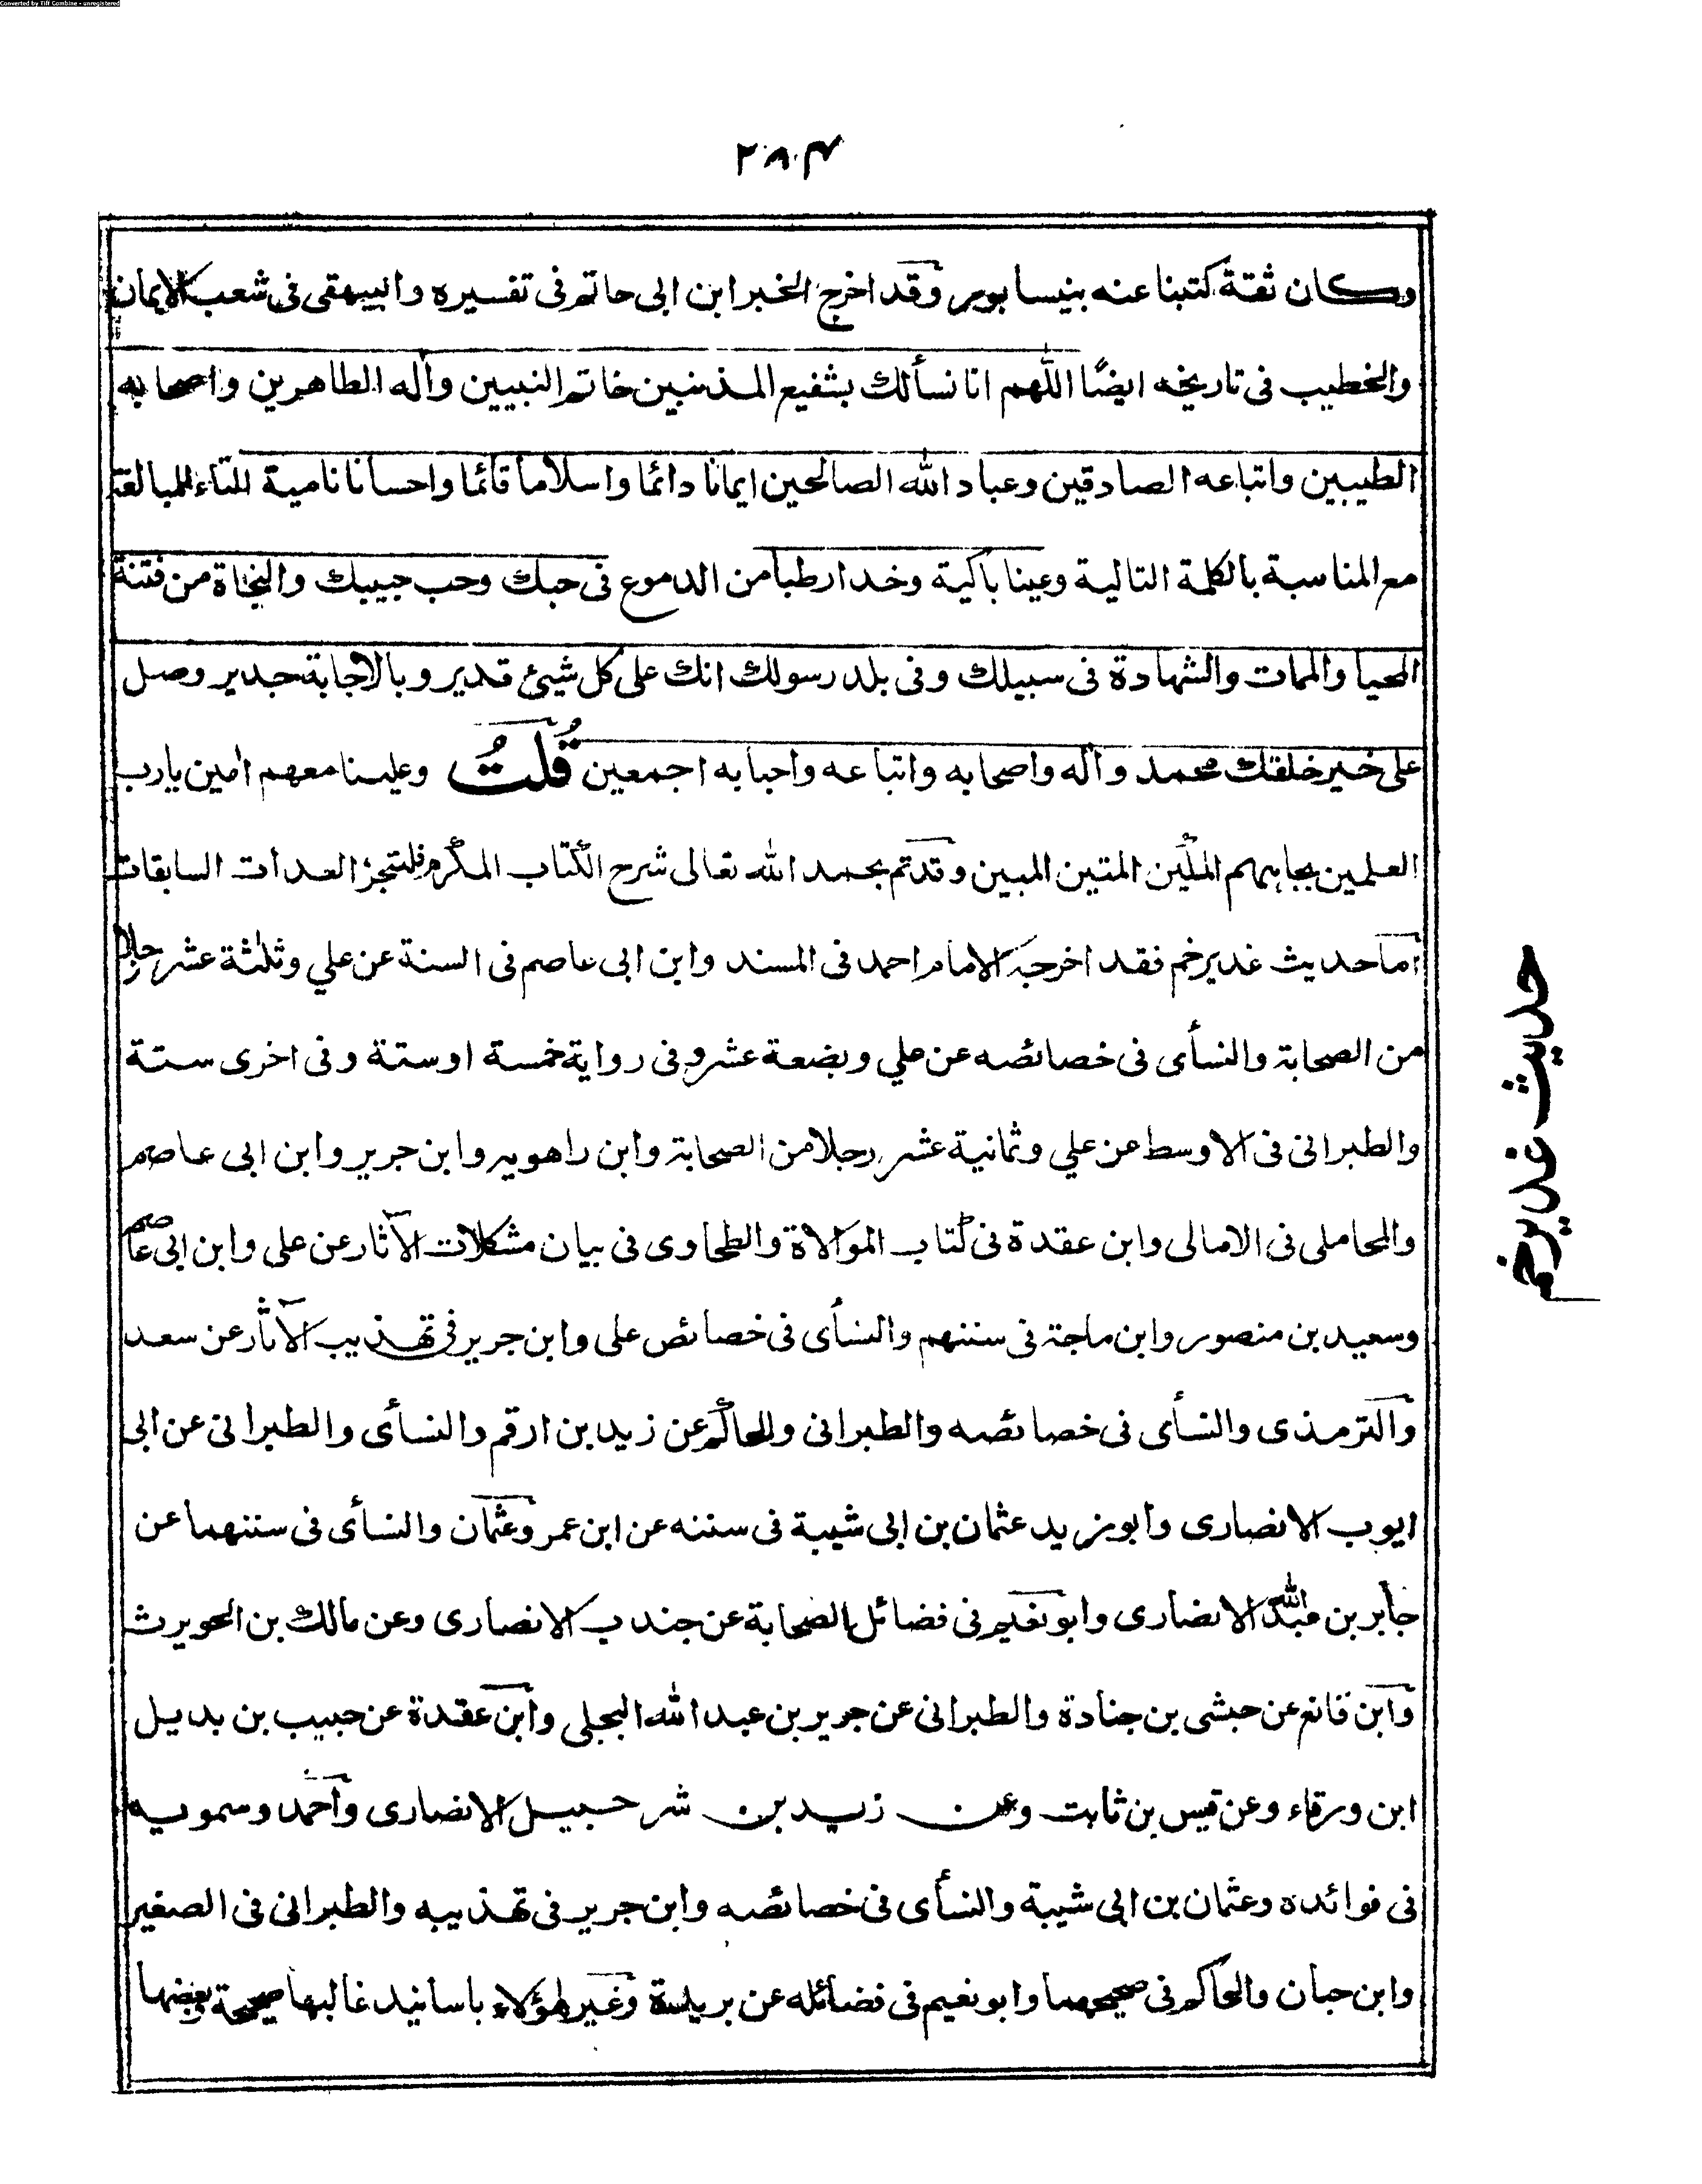 Converted by Tiff Combine - unregistered
٢٧٤
وكان ثقة كتبنا عنه بنيسابور وقد اخرج الخبر ابن ابى حاتم فى تفسيره والبيهقى فى شعب الايمان
والخطيب فى تاريخه ايضًا اللهم انا نسألك بشفيع المذنبين خاتم النبيين وآله الطاهرين واصحابه
الطيبين واتباعه الصادقين وعباد الله الصالحين ايمانا دائما واسلاما قائما واحسانا نامية التاء للمبالغة
مع المناسبة بالكلمة التالية وعينا باكية وخدا رطبا من الدموع فى حبك وحب حبيبك والنجاة من فتنة
المحيا والممات والشهادة فى سبيلك وفى بلد رسولك انك على كل شيئ قدير وبالاجابة جدير وصل
على خير خلقك محمد وآله واصحابه واتباعه واحبابه اجمعين قُلتُ وعلينا معهم امين يارب
العلمين بجاههم المتين المبين وقد تم بحمد الله تعالى شرح الكتاب المكرم فلنتجز العدات السابقات
اما حديث غدير خم فقد اخرجه الامام احمد فى المسند وابن ابى عاصم فى السنة عن علي وثلثة عشر رجلا
من الصحابة والنسأى فى خصائصه عن علي وبضعة عشر وفى رواية خمسة او ستة وفى اخرى ستة
والطبرانى فى الاوسط عن علي وثمانية عشر رجلا من الصحابة وابن راهويه وابن جرير وابن ابى عاصم
والمحاملى فى الامالى وابن عقدة فى كتاب الموالاة والطحاوى فى بيان مشكلات الآثار عن على وابن ابى عاصم
وسعيد بن منصور وابن ماجة فى سننهم والنسأى فى خصائص على وابن جرير فى تهذيب الآثار عن سعد
والترمذى والنسأى فى خصائصه والطبرانى والحاكم عن زيد بن ارقم والنسأى والطبرانى عن ابى
ايوب الانصارى وابو يزيد عثمان بن ابى شيبة فى سننه عن ابن عمر وعثمان والنسأى فى سننهما عن
جابر بن عبد الله الانصارى وابو نعيم فى فضائل الصحابة عن جندب الانصارى وعن مالك بن الحويرث
وابن قانع عن حبشى بن جنادة والطبرانى عن جرير بن عبد الله البجلى وابن عقدة عن حبيب بن بديل
ابن ورقاء وعن قيس بن ثابت وعن زيد بن شرحبيل الانصارى واحمد وسمويه
فى فوائده وعثمان بن ابى شيبة والنسأى فى خصائصه وابن جرير فى تهذيبه والطبرانى فى الصغير
وابن حبان والحاكم فى صحيحهما وابو نعيم فى فضائله عن بريدة وغير هؤلاء باسانيد غالبها صحيحة بعضها
حديث غدير خم